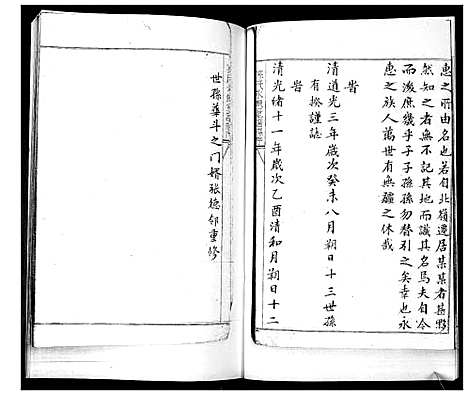 惠之所由名也若自北嶺遷居某某者甚夥
然知之者無不記其地而識其名焉夫自今
而後庶幾乎子子孫孫勿替引之矣幸也永
惠之族人萬世有無疆之休哉
旹
清道光三年歲次癸未八月朔日十三世孫
有琻謹誌
旹
清光緒十一年歲次乙酉清和月朔日十二
世孫葉斗之门婿張德邻重修